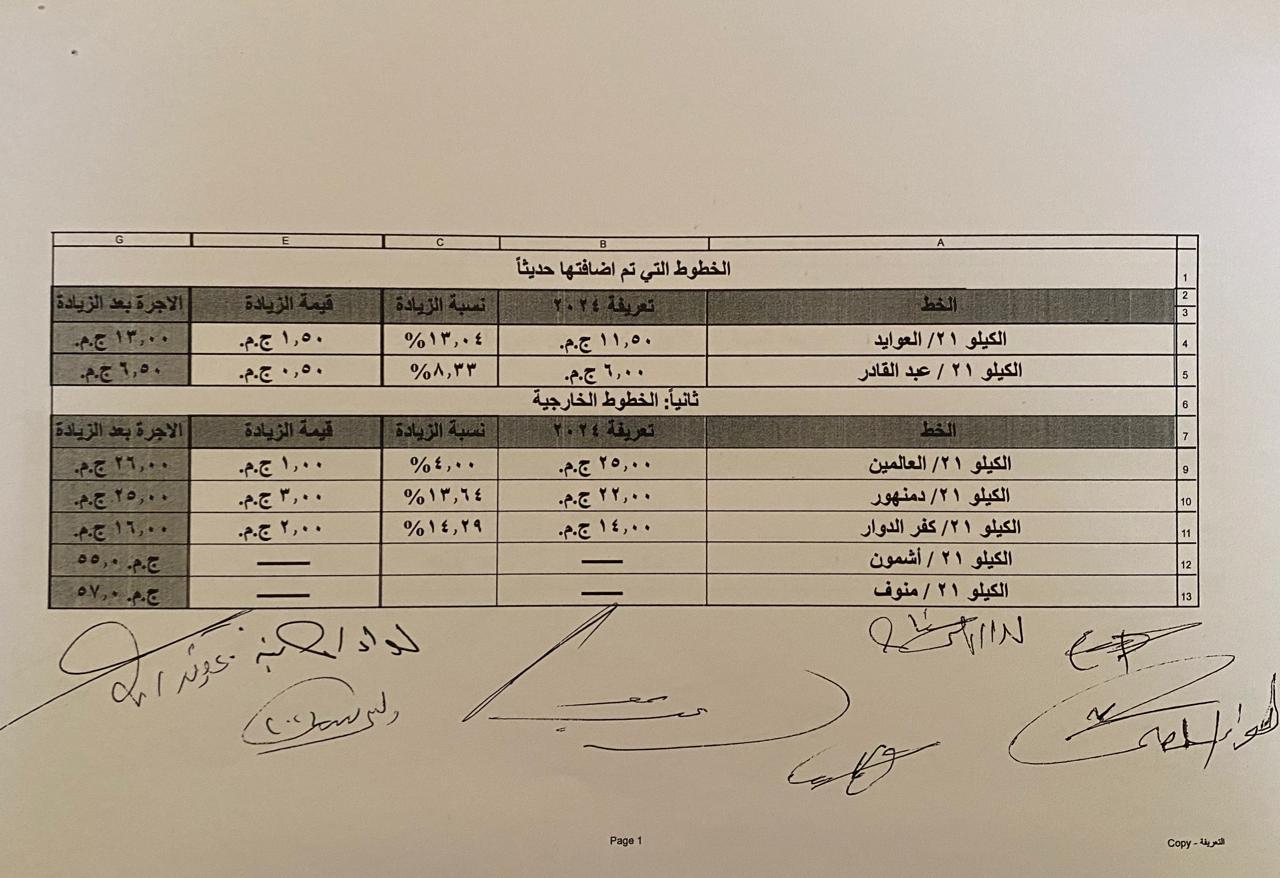 A B C E G
1 الخطوط التي تم اضافتها حديثاً
2
3 الخط تعريفة ٢٠٢٤ نسبة الزيادة قيمة الزيادة الاجرة بعد الزيادة
4 الكيلو ٢١/ العوايد ١١,٥٠ ج.م. ١٣,٠٤% ١,٥٠ ج.م. ١٣,٠٠ ج.م.
5 الكيلو ٢١ / عبد القادر ٦,٠٠ ج.م. ٨,٣٣% ٠,٥٠ ج.م. ٦,٥٠ ج.م.
6 ثانياً: الخطوط الخارجية
7 الخط تعريفة ٢٠٢٤ نسبة الزيادة قيمة الزيادة الاجرة بعد الزيادة
9 الكيلو ٢١/ العالمين ٢٥,٠٠ ج.م. ٤,٠٠% ١,٠٠ ج.م. ٢٦,٠٠ ج.م.
10 الكيلو ٢١/ دمنهور ٢٢,٠٠ ج.م. ١٣,٦٤% ٣,٠٠ ج.م. ٢٥,٠٠ ج.م.
11 الكيلو ٢١/ كفر الدوار ١٤,٠٠ ج.م. ١٤,٢٩% ٢,٠٠ ج.م. ١٦,٠٠ ج.م.
12 الكيلو ٢١ / أشمون — — ج.م. ٥٥,٠
13 الكيلو ٢١ / منوف — — ج.م. ٥٧,٠
Page 1
التعريفة - Copy